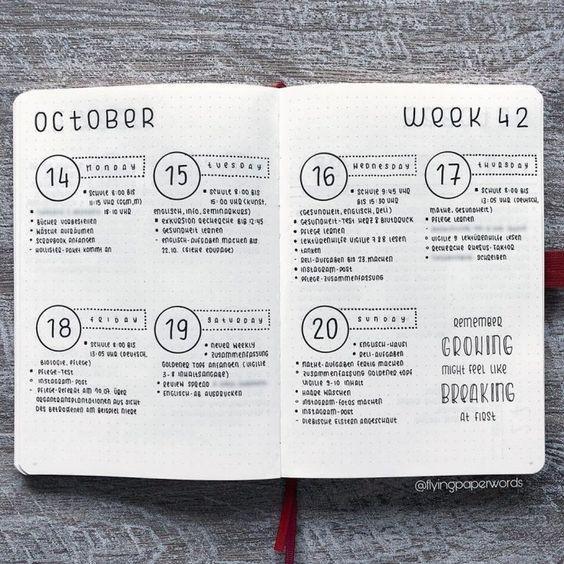 OCTOBER
WEEK 42
14 MONDAY
SCHULE 8:00 BIS
18:10 UHR
BÜCHER VORBEREITEN
WÄSCHE AUFRÄUMEN
SCRAPBOOK ANFANGEN
HOLLISTER-PAKET KOMMT AN
15 TUESDAY
SCHULE 8:00 BIS
15:00 UHR (KUNST,
ENGLISCH, INFO, SEMINARKURS)
EXKURSION RECHERCHE BIS 12:45
GESUNDHEIT LERNEN
ENGLISCH-AUFGABEN MACHEN BIS
22.10. (SIEHE EDUPAGE)
16 WEDNESDAY
SCHULE 9:45 UHR
BIS 15:30 UHR
(GESUNDHEIT, ENGLISCH, RELI)
GESUNDHEIT-TEST HERZ & BLUTDRUCK
PFLEGE LERNEN
LEKTÜRENHILFE VIGILIE 7&8 LESEN
TANKEN
RELI-AUFGABEN BIS 23. MACHEN
INSTAGRAM-POST
PFLEGE-ZUSAMMENFASSUNG
17 THURSDAY
SCHULE 8:00 BIS
13:05 UHR (DEUTSCH,
MATHE, GESUNDHEIT)
PFLEGE LERNEN
VIGILIE 9 LEKTÜRENHILFE LESEN
RECHERCHE RHESUS-FAKTOR
SCHREIBEN
18 FRIDAY
SCHULE 8:00 BIS
13:05 UHR (DEUTSCH,
BIOLOGIE, PFLEGE)
PFLEGE-TEST
INSTAGRAM-POST
PFLEGE-REFERAT AM ÜBER
ORGANTRANSPLANTATIONEN AUS SICHT
DES BETROFFENEN AM BEISPIEL NIERE
19 SATURDAY
NEUER WEEKLY
ZUSAMMENFASSUNG
GOLDENER TOPF ANFANGEN (VIGILIE
3-8 INHALTSANGABE)
REVIEW SPREAD
ENGLISCH-AB AUSDRUCKEN
20 SUNDAY
ENGLISCH-HAUSI
RELI-AUFGABEN
MATHE-AUFGABEN FERTIG MACHEN
ZUSAMMENFASSUNG GOLDENER TOPF
VIGILIE 9-10 INHALT
HAARE WASCHEN
INSTAGRAM-FOTOS MACHEN
INSTAGRAM-POST
DIEBISCHE ELSTERN ANGESCHAUT
REMEMBER
GROWING
MIGHT FEEL LIKE
BREAKING
AT FIRST
@flyingpaperwords